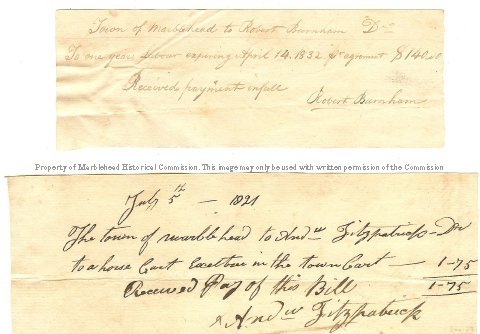 Town of Marblehead to Robert Burnham Dr
To one years Labour expiring April 14. 1832 pr agreement $140.00
Received payment in full
Robert Burnham
Property of Marblehead Historical Commission. This image may only be used with written permission of the Commission
July 5th — 1821
The town of marblehead to Andw Fitzpatrick — Dr
to a horse Cart in the town Cart — 1-75
Receved Pay of this Bill 1-75
Andw Fitzpatrick